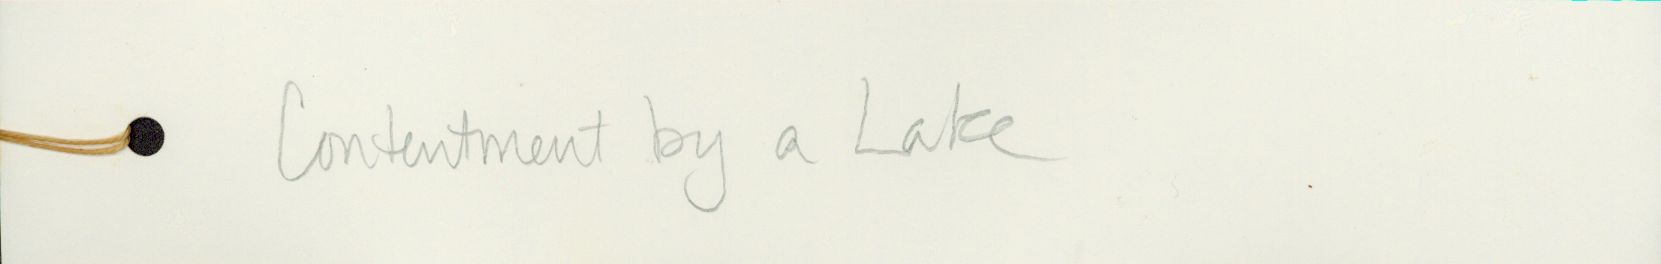 Contentment by a Lake